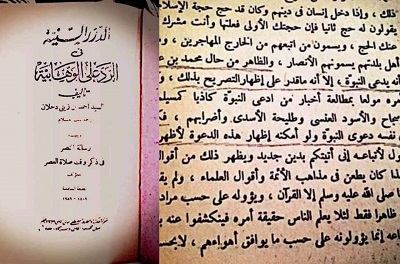 الدرر السنية
في
الرد على الوهابية
تأليف
السيد أحمد بن زيني دحلان
رسالة النصر
في ذكر وقت صلاة العصر
ذلك ، وإذا دخل إنسان في دينهم وكان قد حج حجة الإسلام
يقولون له حج ثانيا فإن حجتك الأولى فعلتها وأنت مشرك
عنك الحج ، ويسمون من اتبعهم من الخارج المهاجرين ،
أهل بلدتهم يسمونهم الأنصار ، والظاهر من حال محمد بن عبد
أنه يدعي النبوة ، إلا أنه ماقدر على إظهار التصريح بذلك ،
مره مولعا بمطالعة أخبار من ادعى النبوة كاذبا كمسيلمة
سجاح والأسود العنسي وطليحة الأسدي وأضرابهم ،
نفسه دعوى النبوة ولو أمكنه إظهار هذه الدعوة لأظهر
ول لأتباعه إني أتيتكم بدين جديد ويظهر ذلك من أقوال
لذا كان يطعن في مذاهب الأئمة وأقوال العلماء ، ولم يقبل
صلى الله عليه وسلم إلا القرآن ، ويؤوله على حسب مراده
ظاهرا فقط لئلا يعلم الناس حقيقة أمره فينكشفوا عنه
باعه إنما يؤولونه على حسب ما يوافق أهواءهم ،